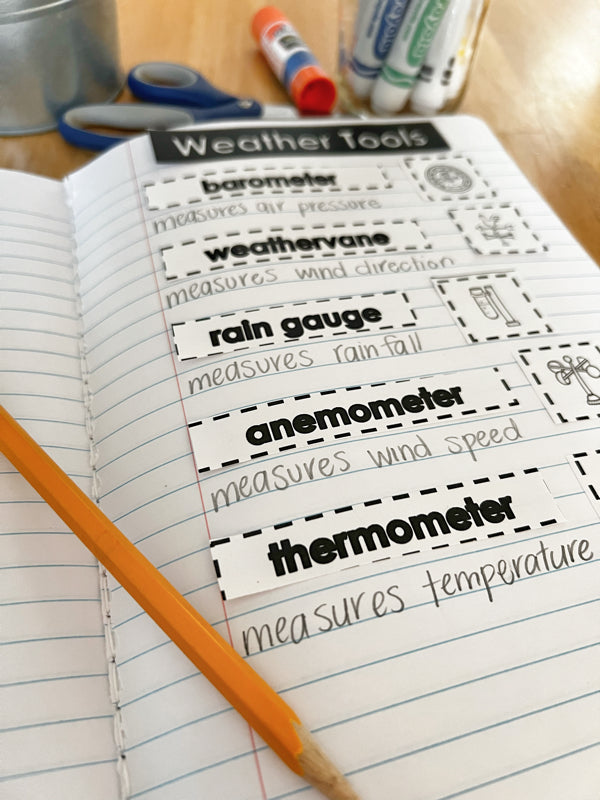 Weather Tools
barometer
measures air pressure
weathervane
measures wind direction
rain gauge
measures rainfall
anemometer
measures wind speed
thermometer
measures temperature